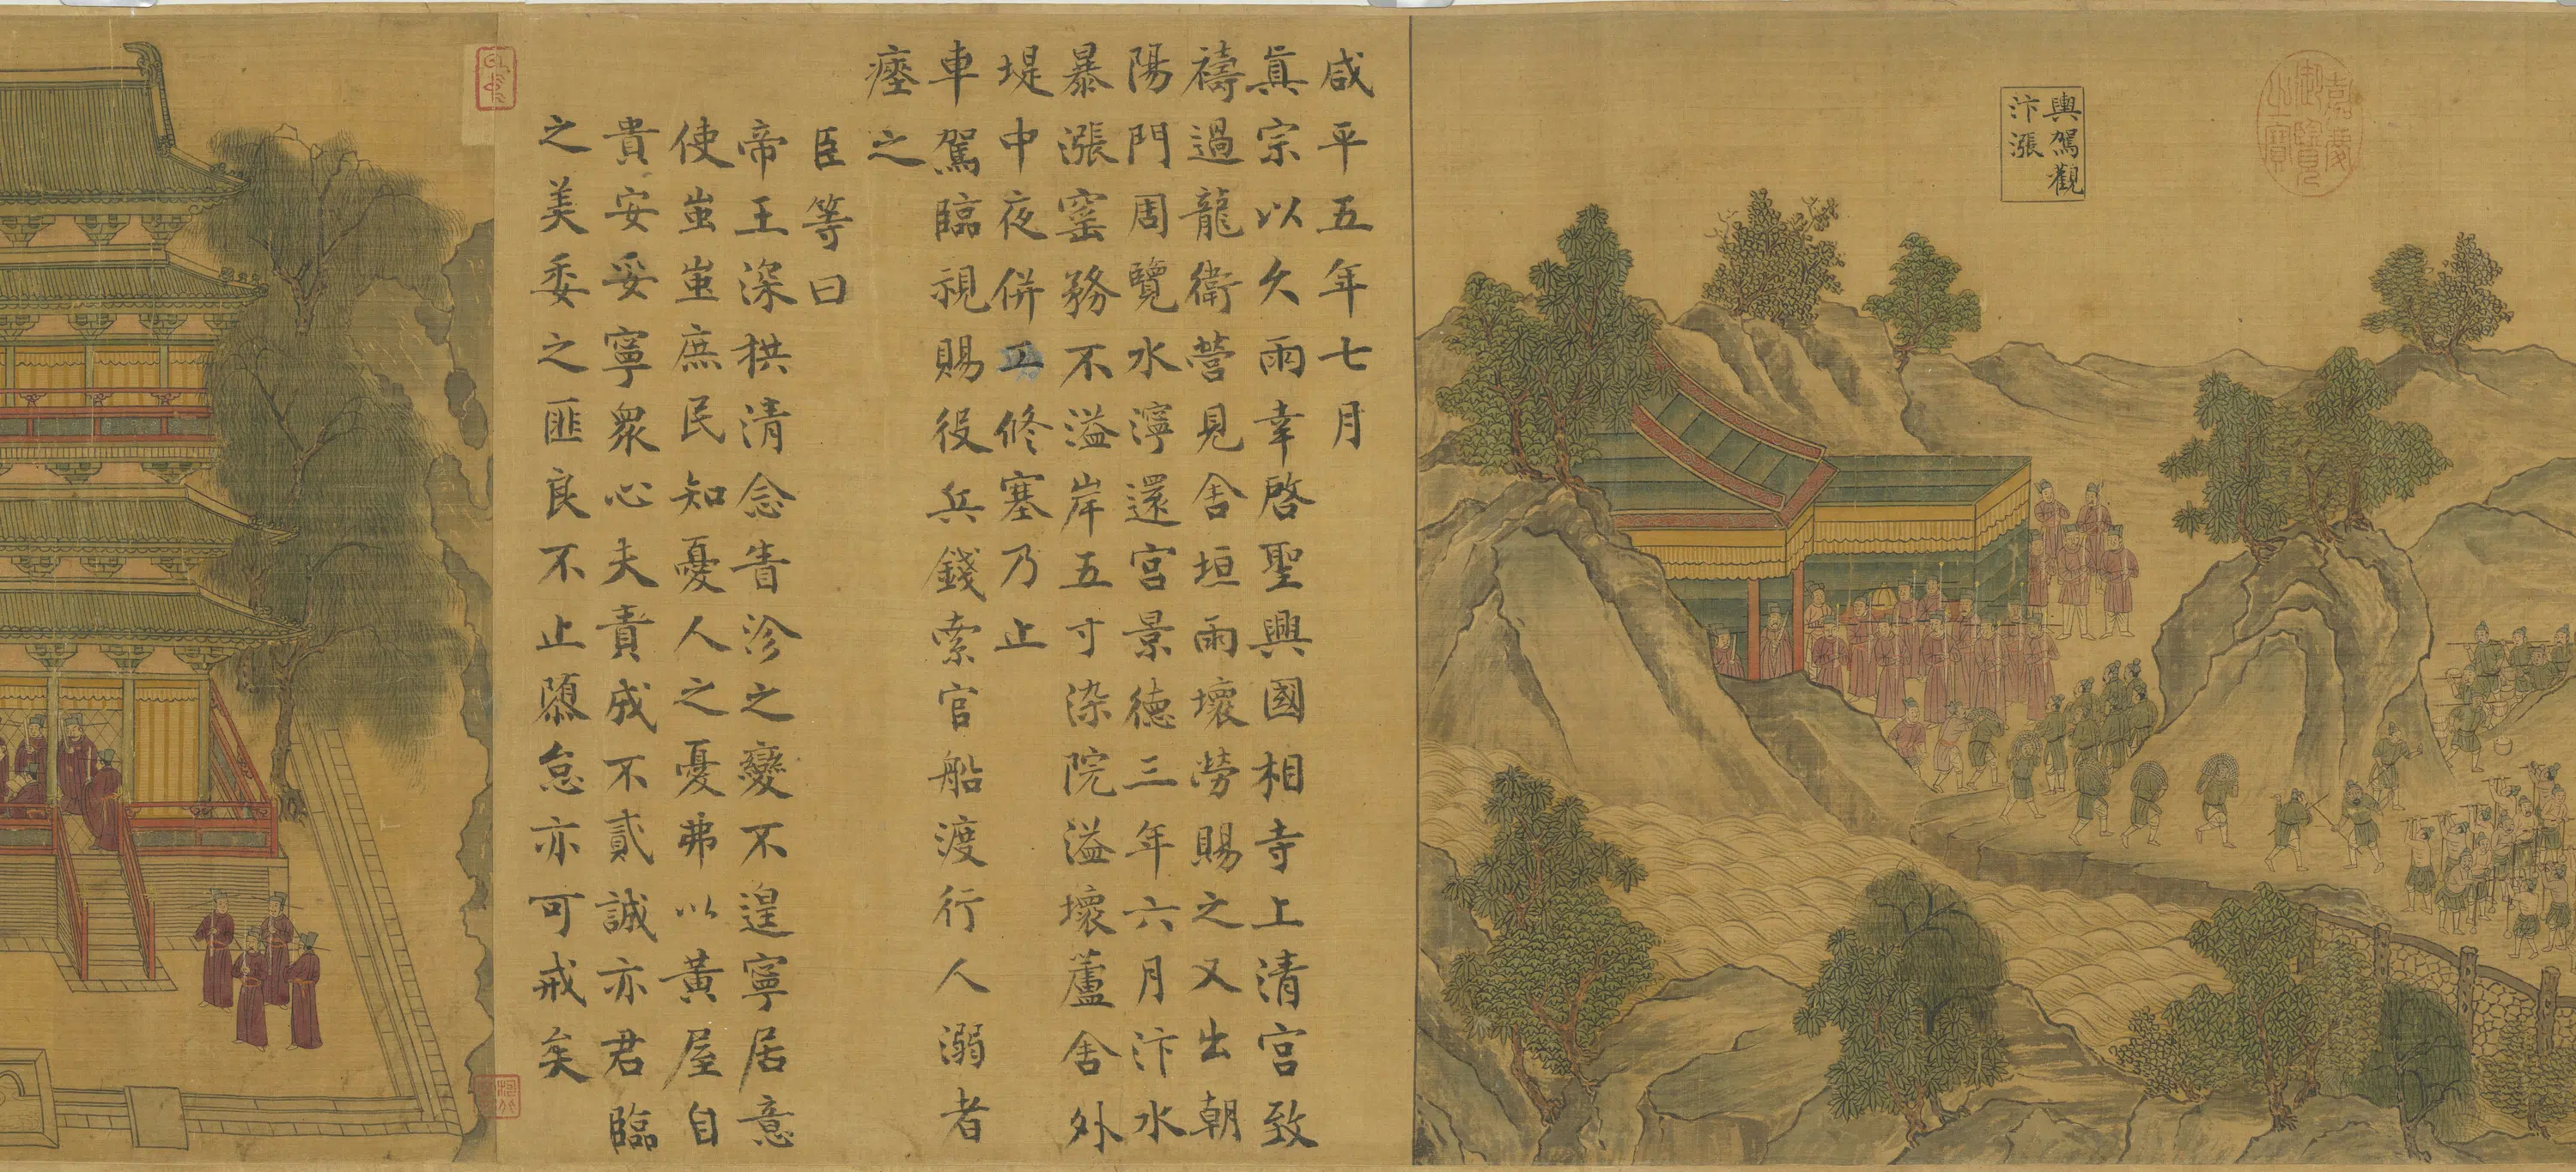 嘉慶
御覽
之寶
輿駕觀
汴漲
咸平五年七月
眞宗以久雨幸啓聖興國相寺上清宮致
禱過龍衛營見舍垣雨壞勞賜之又出朝
陽門周覽水濘還宮景徳三年六月汴水
暴漲窰務不溢岸五寸染院溢壞蘆舍外
堤中夜併工修塞乃止
車駕臨視賜役兵錢索官船渡行人溺者
瘞之
臣等曰
帝王深拱清念眚沴之變不遑寧居意
使蚩蚩庶民知憂人之憂弗以黃屋自
貴安妥寧衆心夫責成不貳誠亦君臨
之美委之匪良不止隳怠亦可戒矣